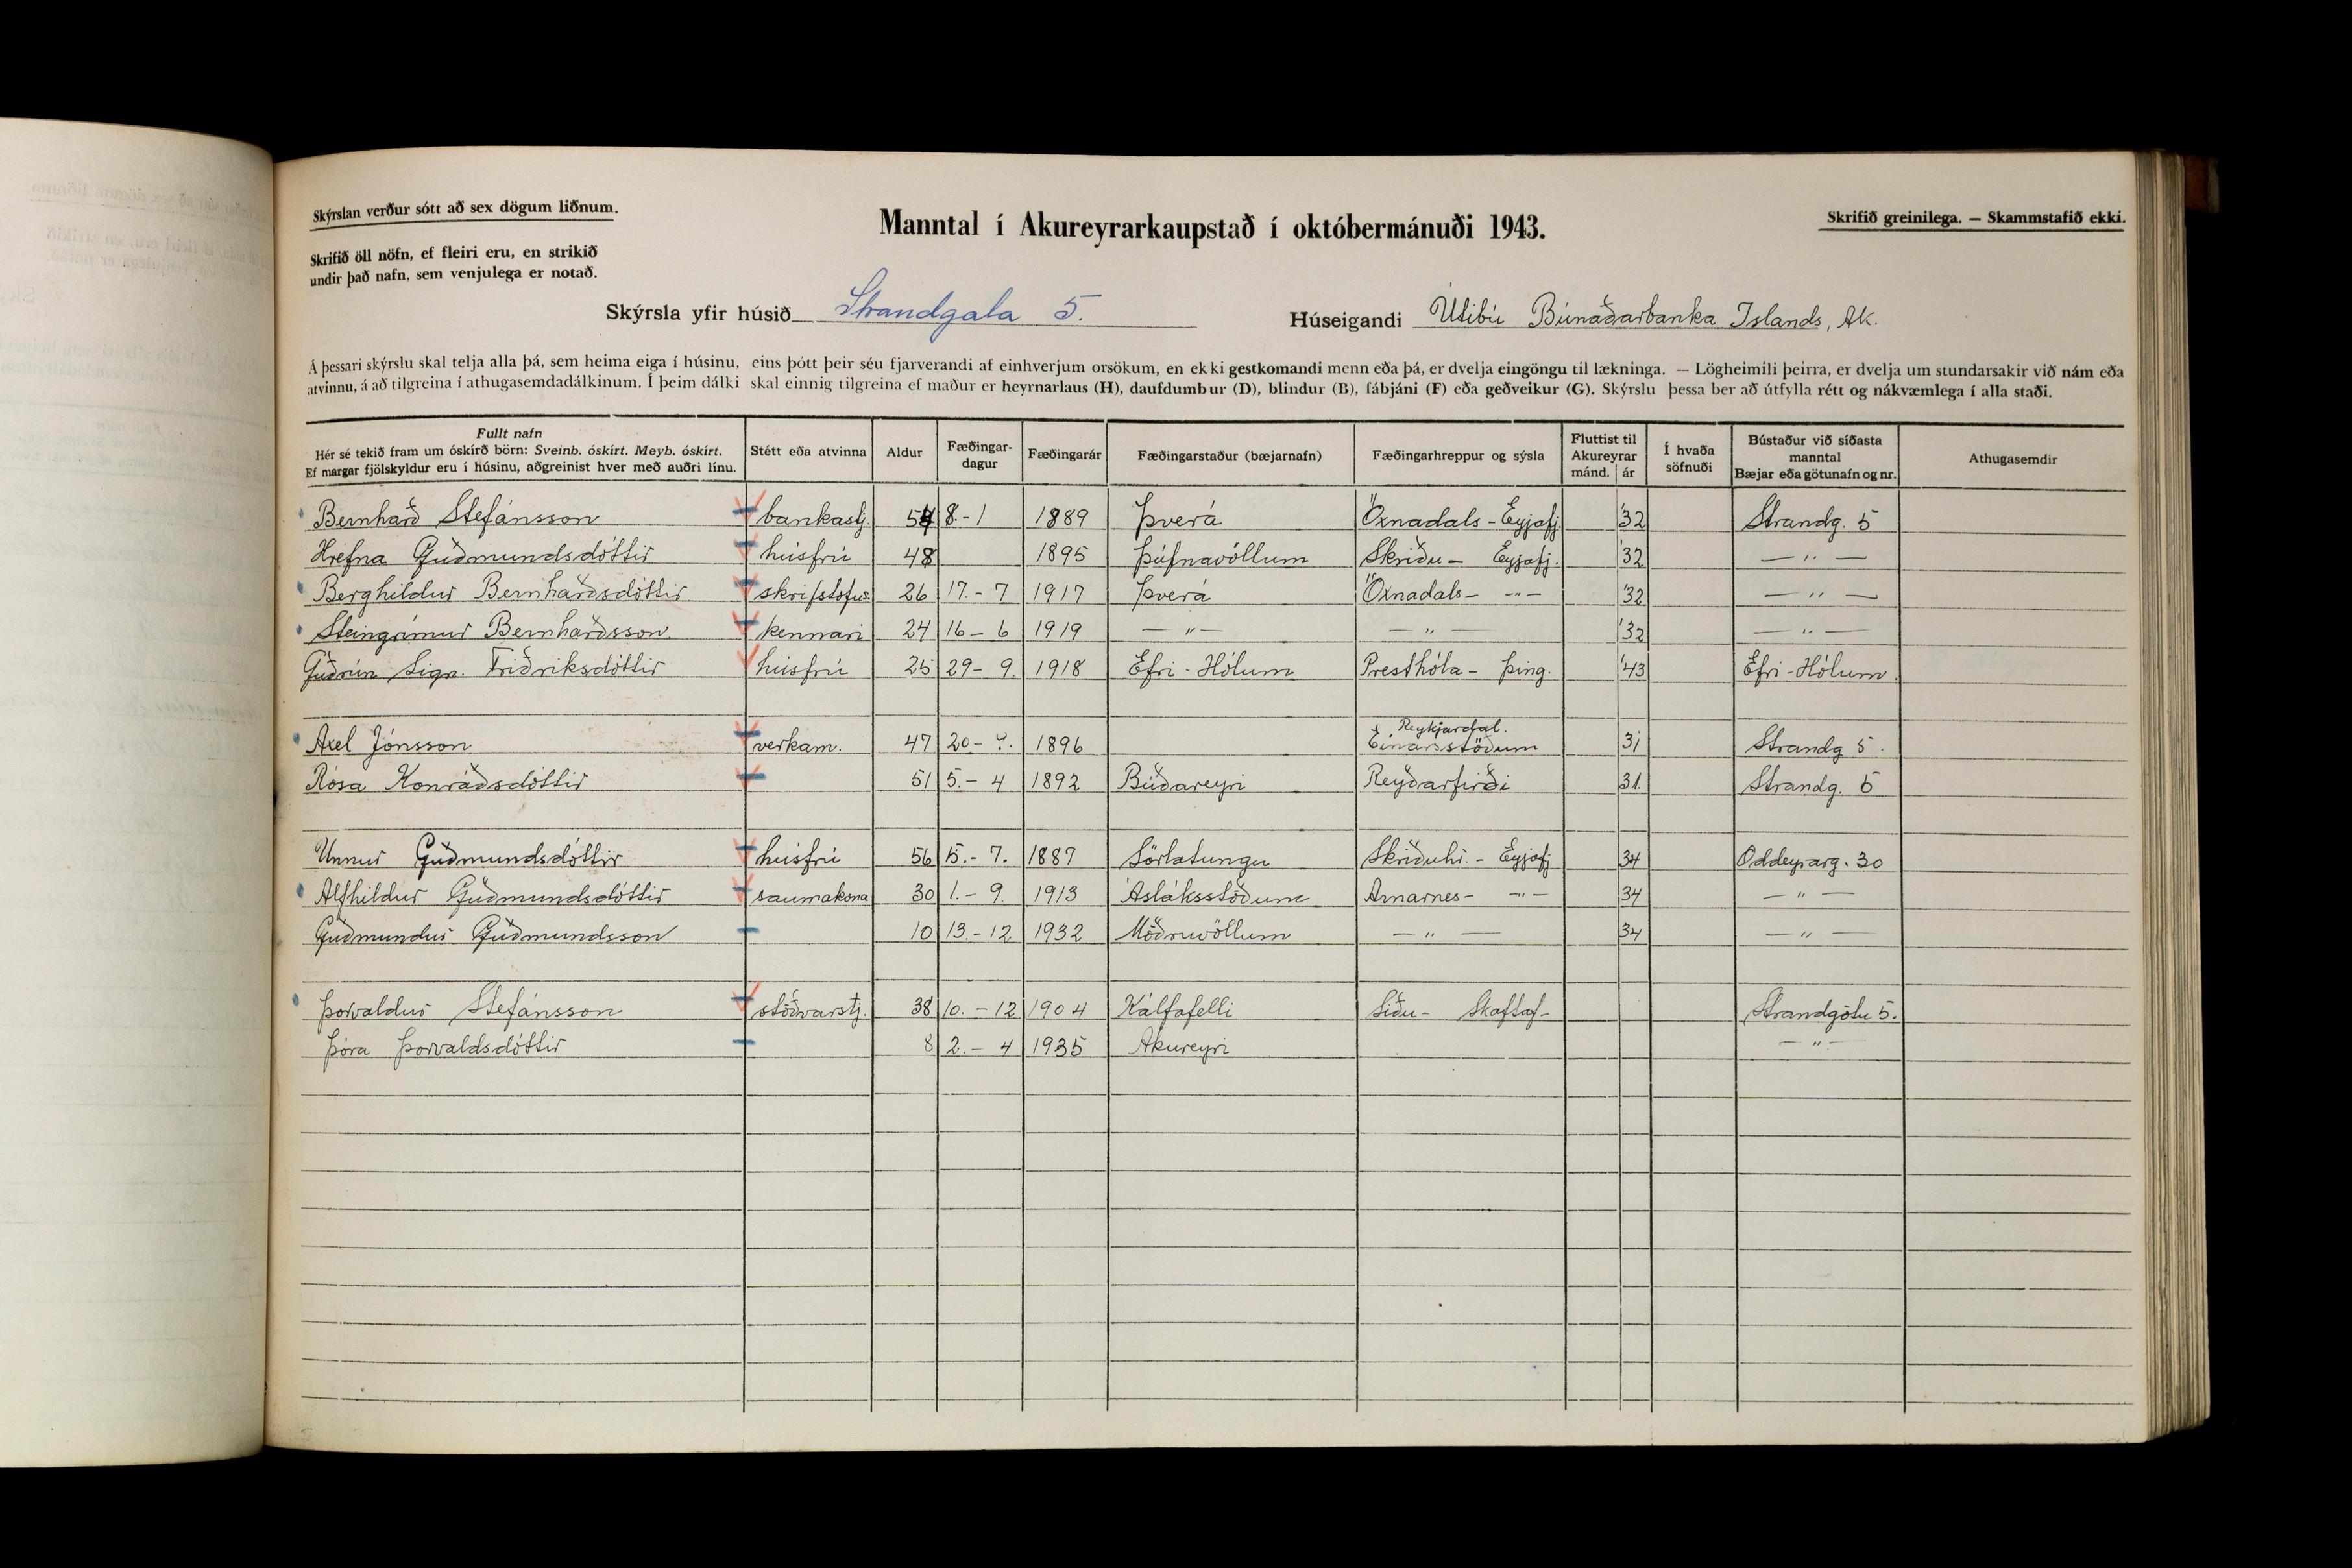 Skýrslan verður sótt að sex dögum liðnum.
Skrifið öll nöfn, ef fleiri eru, en strikið
undir það nafn, sem venjulega er notað.
Manntal í Akureyrarkaupstað í októbermánuði 1943.
Skrifið greinilega. — Skammstafið ekki.
Skýrsla yfir húsið Strandgata 5.
Húseigandi Útibú Búnaðarbanka Islands, Ak.
Á þessari skýrslu skal telja alla þá, sem heima eiga í húsinu, eins þótt þeir séu fjarverandi af einhverjum orsökum, en ekki gestkomandi menn eða þá, er dvelja eingöngu til lækninga. — Lögheimili þeirra, er dvelja um stundarsakir við nám eða
atvinnu, á að tilgreina í athugasemdadálkinum. Í þeim dálki skal einnig tilgreina ef maður er heyrnarlaus (H), daufdumbur (D), blindur (B), fábjáni (F) eða geðveikur (G). Skýrslu þessa ber að útfylla rétt og nákvæmlega í alla staði.
Fullt nafn
Hér sé tekið fram um óskírð börn: Sveinb. óskírt. Meyb. óskírt.
Ef margar fjölskyldur eru í húsinu, aðgreinist hver með auðri línu.
Stétt eða atvinna
Aldur
Fæðingar-
dagur
Fæðingarár
Fæðingarstaður (bæjarnafn)
Fæðingarhreppur og sýsla
Fluttist til
Akureyrar
mánd. ár
Í hvaða
söfnuði
Bústaður við síðasta
manntal
Bæjar eða götunafn og nr.
Athugasemdir
Bernharð Stefánsson bankastj. 54 8.-1 1889 Þverá Öxnadals - Eyjafj. '32 Strandg. 5
Hrefna Guðmundsdóttir húsfrú 48 1895 Þúfnavöllum Skriðu - Eyjafj. '32 — " —
Berghildur Bernharðsdóttir skrifstofus. 26 17.-7 1917 Þverá Öxnadals - -"- '32 — " —
Steingrímur Bernharðsson. kennari 24 16-6 1919 — " — — " — '32 — " —
Guðrún Sigr. Friðriksdóttir húsfrú 25 29-9. 1918 Efri-Hólum Presthóla - Þing. '43 Efri-Hólum.
Axel Jónsson verkam. 47 20- 1896 Reykjardal.
Einarsstöðum 31 Strandg 5.
Rósa Konráðsdóttir 51 5.-4 1892 Búðareyri Reyðarfirði 31. Strandg. 5
Unnur Guðmundsdóttir húsfrú 56 15.-7. 1887 Sörlatungu Skriðuhr. - Eyjafj 34 Oddeyrarg. 30
Alfhildur Guðmundsdóttir saumakona 30 1.-9. 1913 Ásláksstöðum Arnarnes - -"- 34 — " —
Guðmundur Guðmundsson 10 13.-12 1932 Möðruvöllum — " — 34 — " —
Þorvaldur Stefánsson stöðvarstj. 38 10.-12 1904 Kálfafelli Síðu - Skaftaf- Strandgötu 5.
Þóra Þorvaldsdóttir 8 2.-4 1935 Akureyri — " —